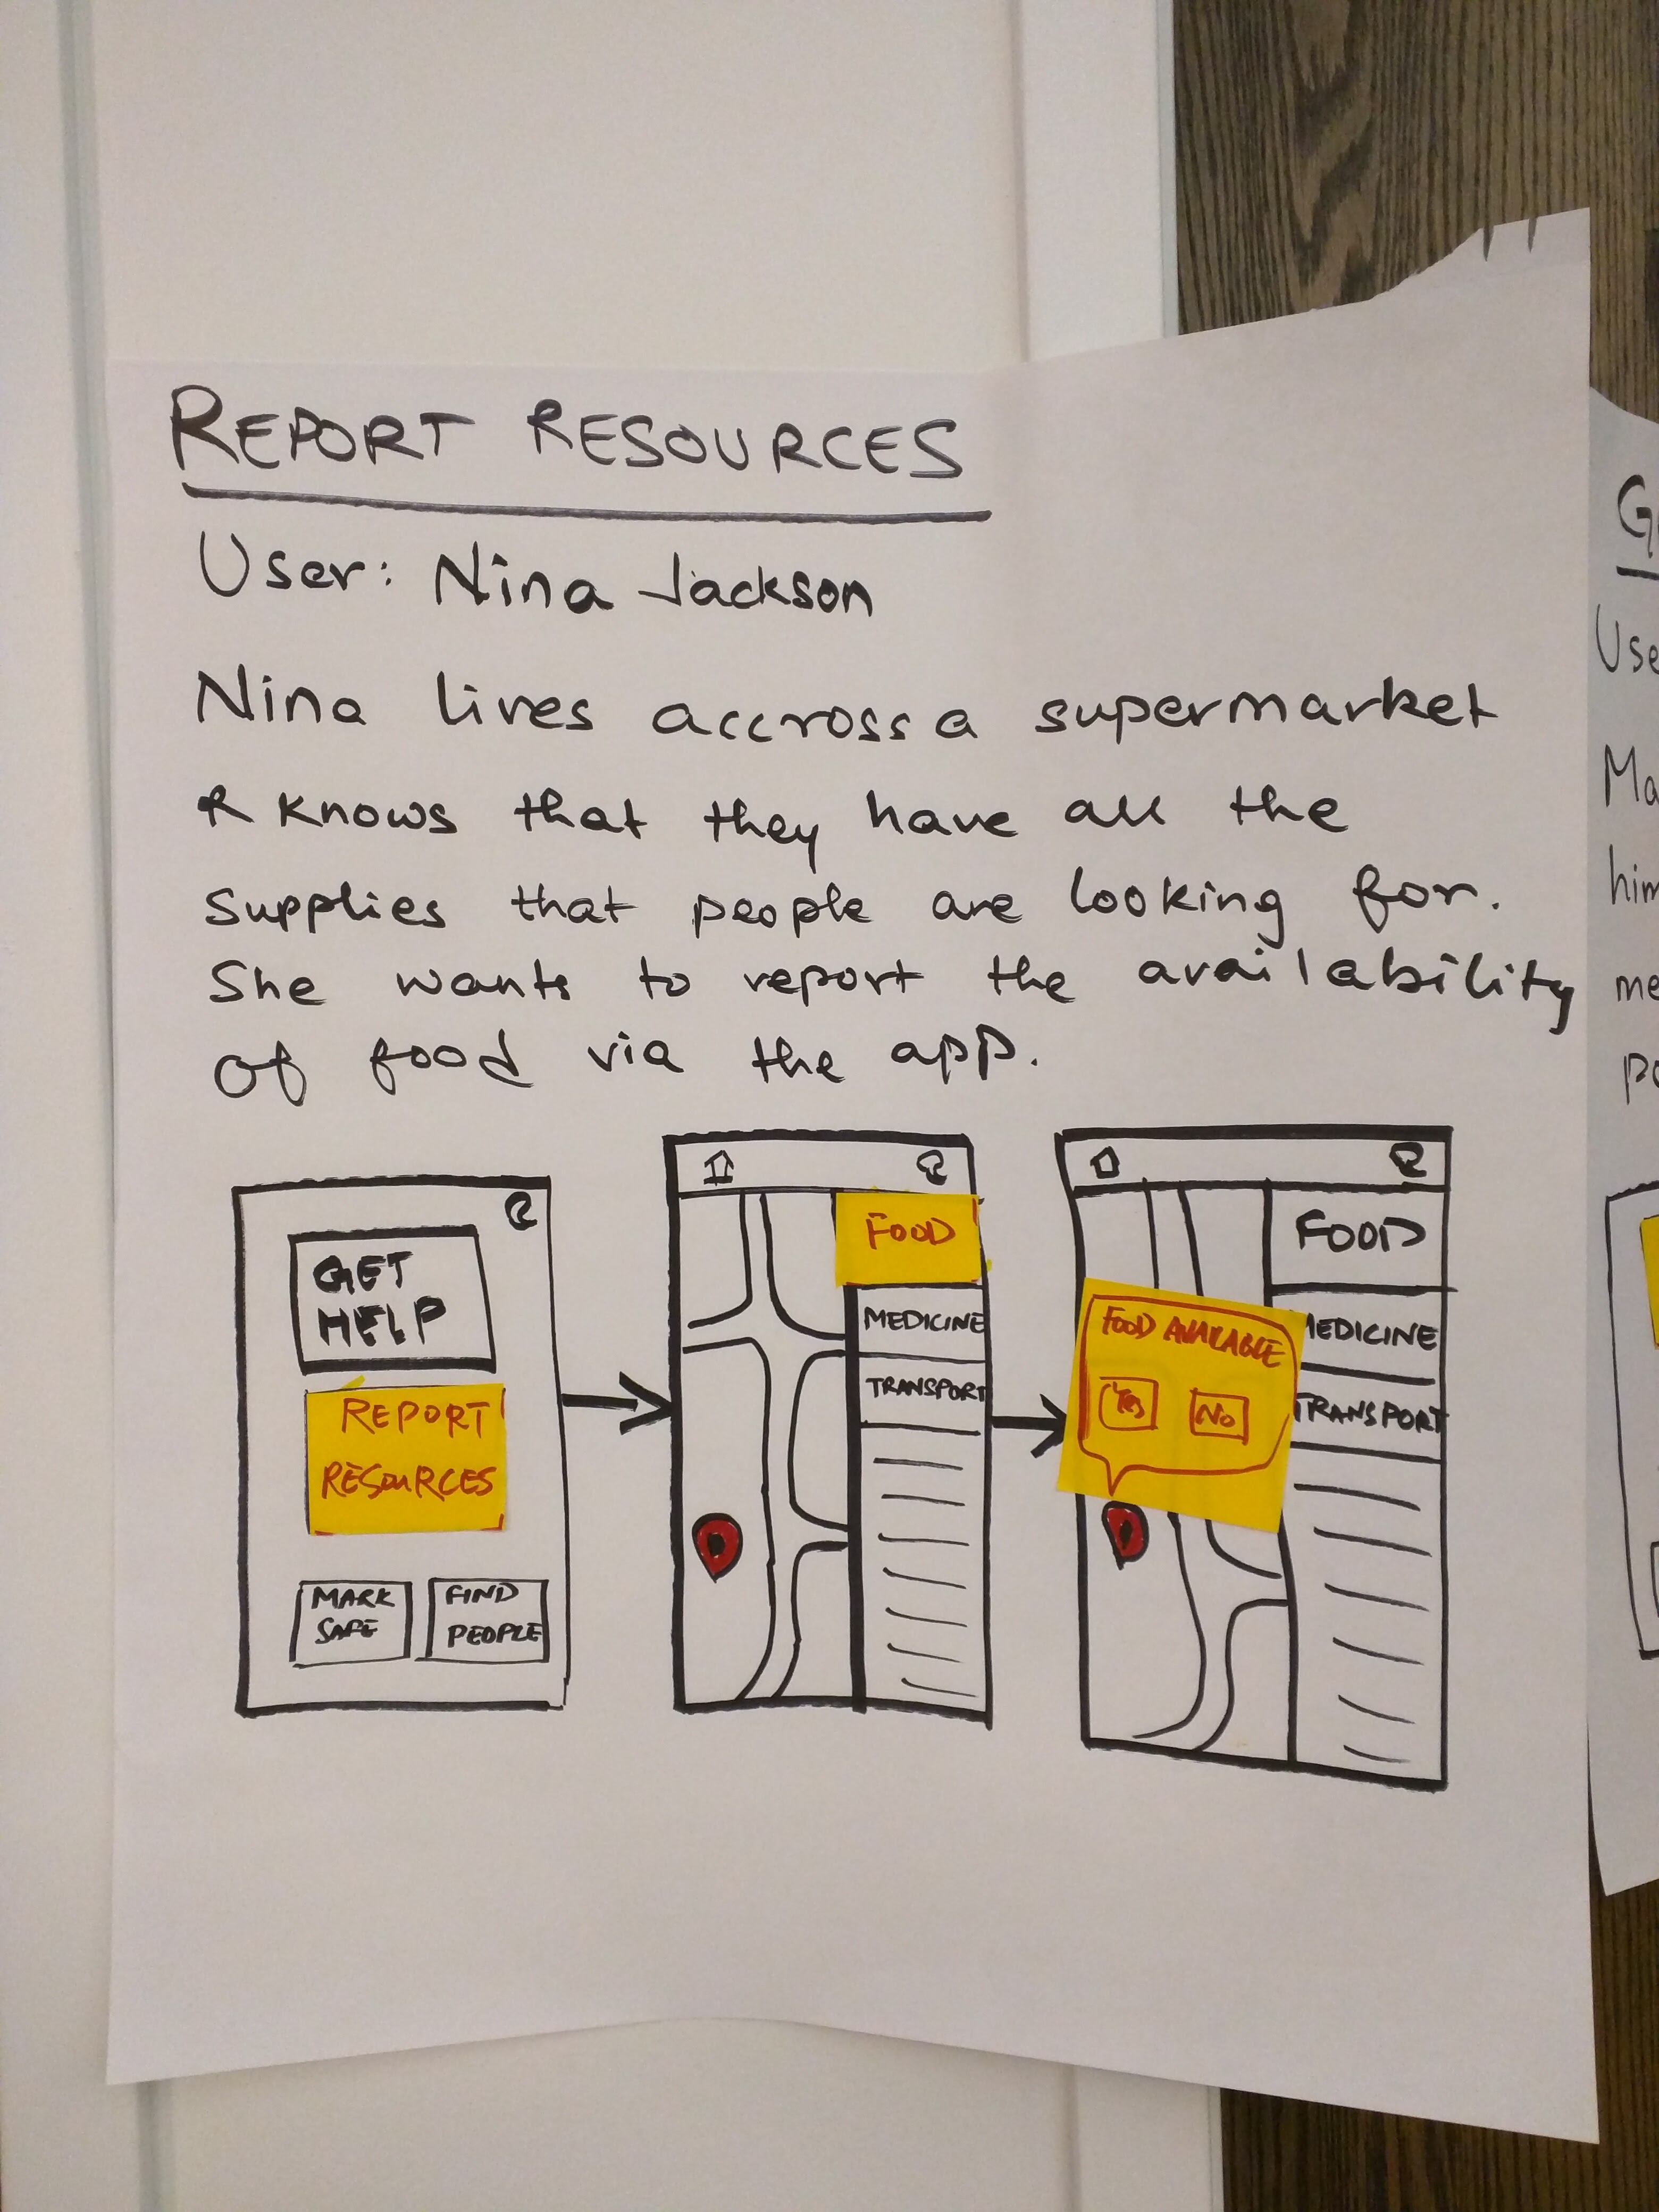 REPORT RESOURCES
User: Nina Jackson
Nina lives accross a supermarket
& knows that they have all the
supplies that people are looking for.
She wants to report the availability
of food via the app.
GET
HELP
REPORT
RESOURCES
MARK
SAFE
FIND
PEOPLE
FOOD
MEDICINE
TRANSPORT
FOOD
MEDICINE
TRANSPORT
FOOD AVAILABLE
Yes
No
Use
Ma
him
me
po